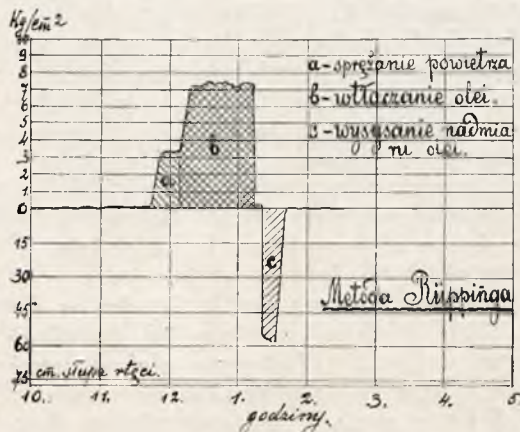 Kg/cm2
10
9
8
7
6
5
4
3
2
1
0
15
30
45
60
75
a-sprężanie powietrza
b-wtłaczanie olei.
c-wysysanie nadmia
ru olei.
a
b
c
Metoda Rüppinga
cm. słupa rtęci.
10. 11. 12. 1. 2. 3. 4. 5
godziny.